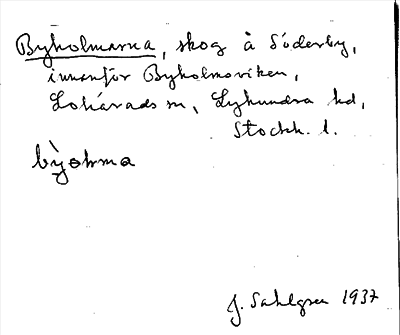 Byholmarna, skog å Söderby,
innanför Byholmsviken,
Lohärads sn, Lyhundra hd,
Stockh. l.
by̍ohma
J. Sahlgren 1937